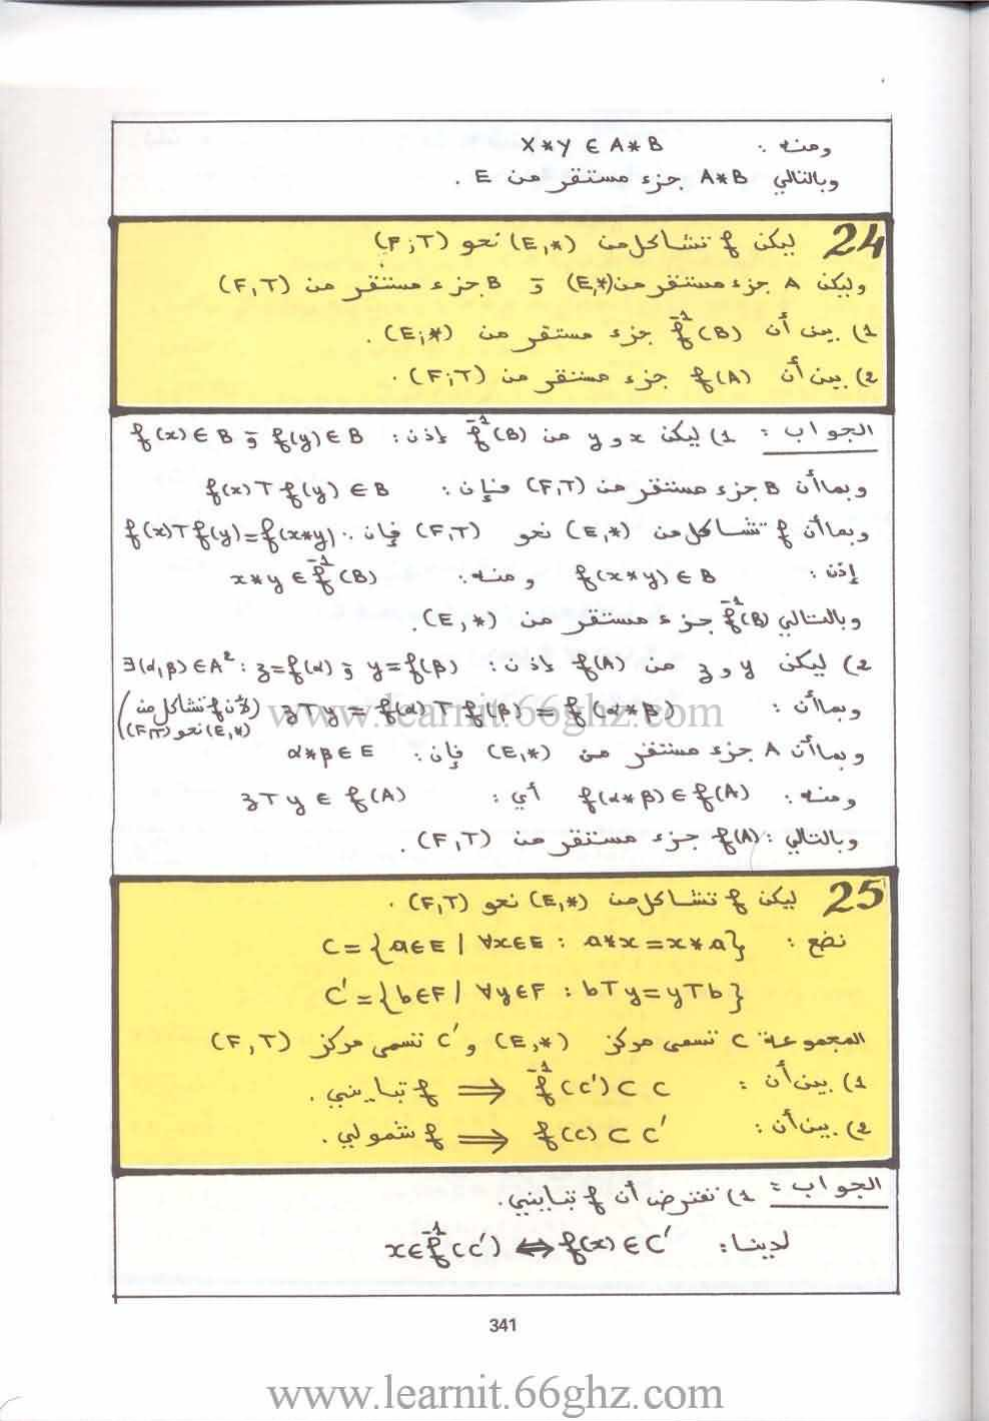 ومنه : X * Y ∈ A * B
وبالتالي A*B جزء مستقر من E .
24 ليكن f تشاكل من (E,*) نحو (F;T)
وليكن A جزء مستقر من (E,*) و B جزء مستقر من (F,T)
1) بين أن f⁻¹(B) جزء مستقر من (E;*) .
2) بين أن f(A) جزء مستقر من (F;T) .
الجواب : 1) ليكن x و y من f⁻¹(B) إذن : f(y) ∈ B و f(x) ∈ B
وبماأن B جزء مستقر من (F,T) فإن : f(x) T f(y) ∈ B
وبماأن f تشاكل من (E,*) نحو (F,T) فإن : f(x) T f(y) = f(x*y)
إذن : f(x*y) ∈ B ومنه : x*y ∈ f⁻¹(B)
وبالتالي f⁻¹(B) جزء مستقر من (E,*) .
2) ليكن y و z من f(A) إذن : ∃(α,β) ∈ A² : z = f(α) و y = f(β)
وبماأن : z T y = f(α) T f(β) = f(α*β) (لأن f تشاكل من (E,*) نحو (F,T))
وبماأن A جزء مستقر من (E,*) فإن : α*β ∈ E
ومنه : f(α*β) ∈ f(A) أي : z T y ∈ f(A)
وبالتالي : f(A) جزء مستقر من (F,T) .
25 ليكن f تشاكل من (E,*) نحو (F,T) .
نضع : C = {a∈E | ∀x∈E : a*x = x*a}
C' = {b∈F | ∀y∈F : bTy = yTb}
المجموعة C تسمى مركز (E,*) و C' تسمى مركز (F,T)
1) بين أن : f⁻¹(C') ⊂ C ⟸ f تبايني .
2) بين أن : f(C) ⊂ C' ⟸ f شمولي .
الجواب : 1) نفترض أن f تبايني .
لدينا : x ∈ f⁻¹(C') ⟺ f(x) ∈ C'
341
www.learnit.66ghz.com
www.learnit.66ghz.com